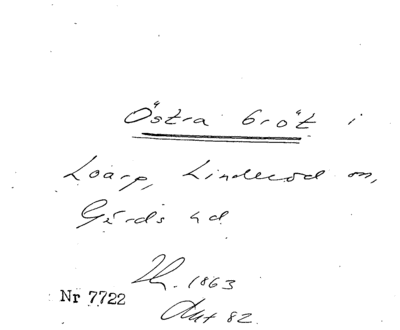 Östra Gröt i
Loarp, Linderöd sn,
Gärds hd
Th. 1863
Nr 7722
Akt 82